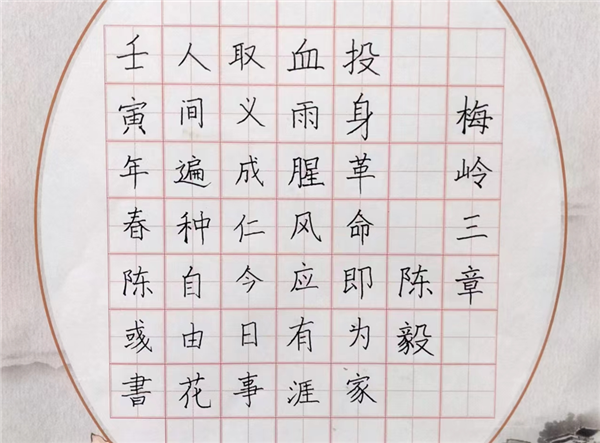 梅岭三章
陈毅
投身革命即为家
血雨腥风应有涯
取义成仁今日事
人间遍种自由花
壬寅年春陈彧書